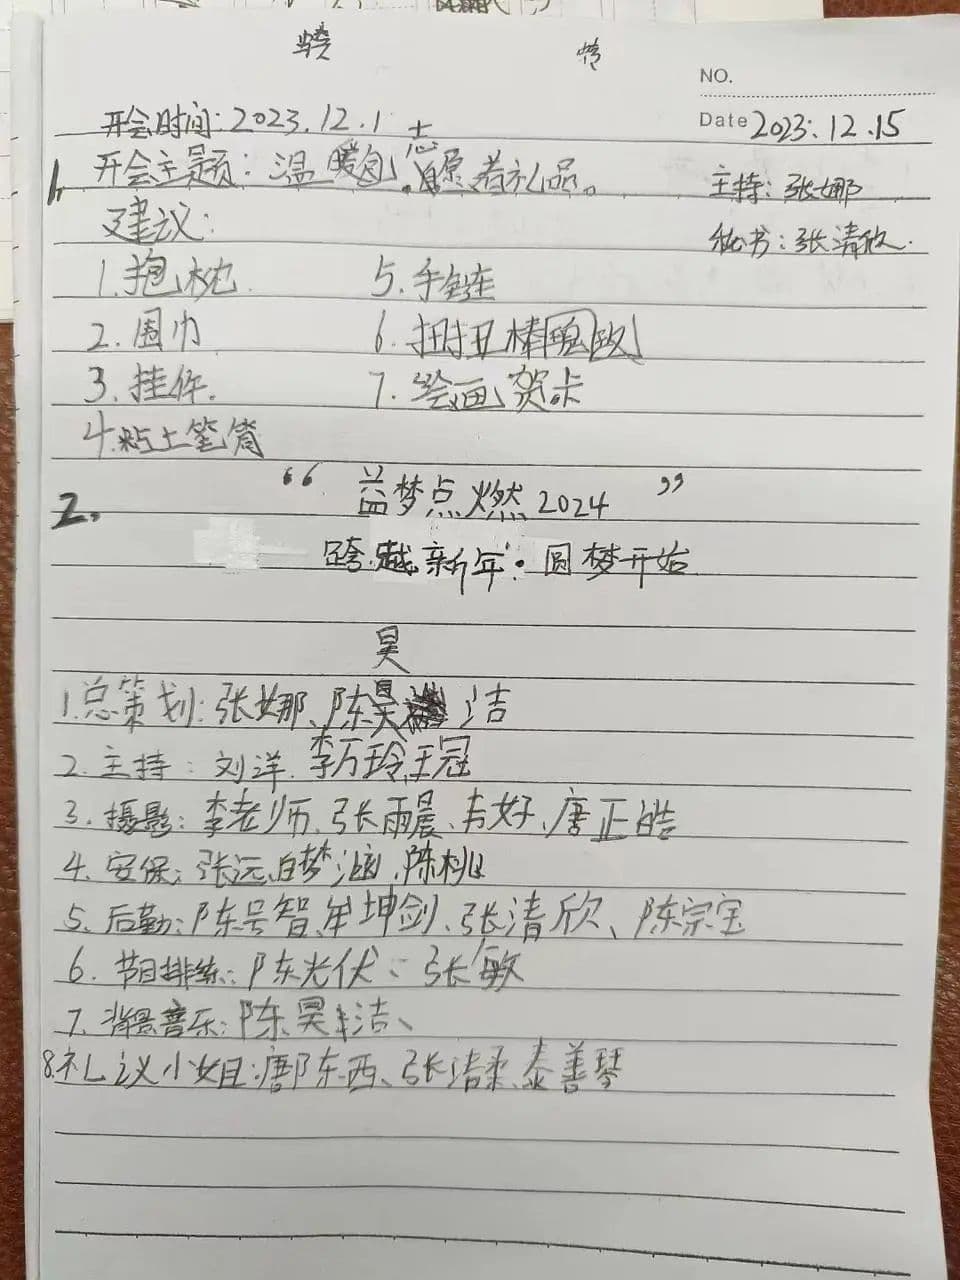 NO.
Date 2023.12.15
开会时间：2023.12.1
1. 开会主题：温暖包，志愿者礼品。
主持：张娜
建议：
秘书：张清欣.
1.抱枕 5.手链
2.围巾 6.扭扭棒
3.挂件. 7.绘画贺卡
4.粘土笔筒
2. “益梦点燃2024”
跨越新年·圆梦开始
昊
1.总策划：张娜、陈昊洁
2.主持：刘洋.李万玲.王冠
3.摄影：李老师.张雨晨、韦好、唐正皓
4.安保：张远、白梦涵.陈桃
5.后勤：陈号智、牟坤剑、张清欣、陈宗宝
6.节目排练：陈光伏：张敏
7.背景音乐：陈昊洁、
8.礼议小姐：唐陈西、张洁柔、秦善琴